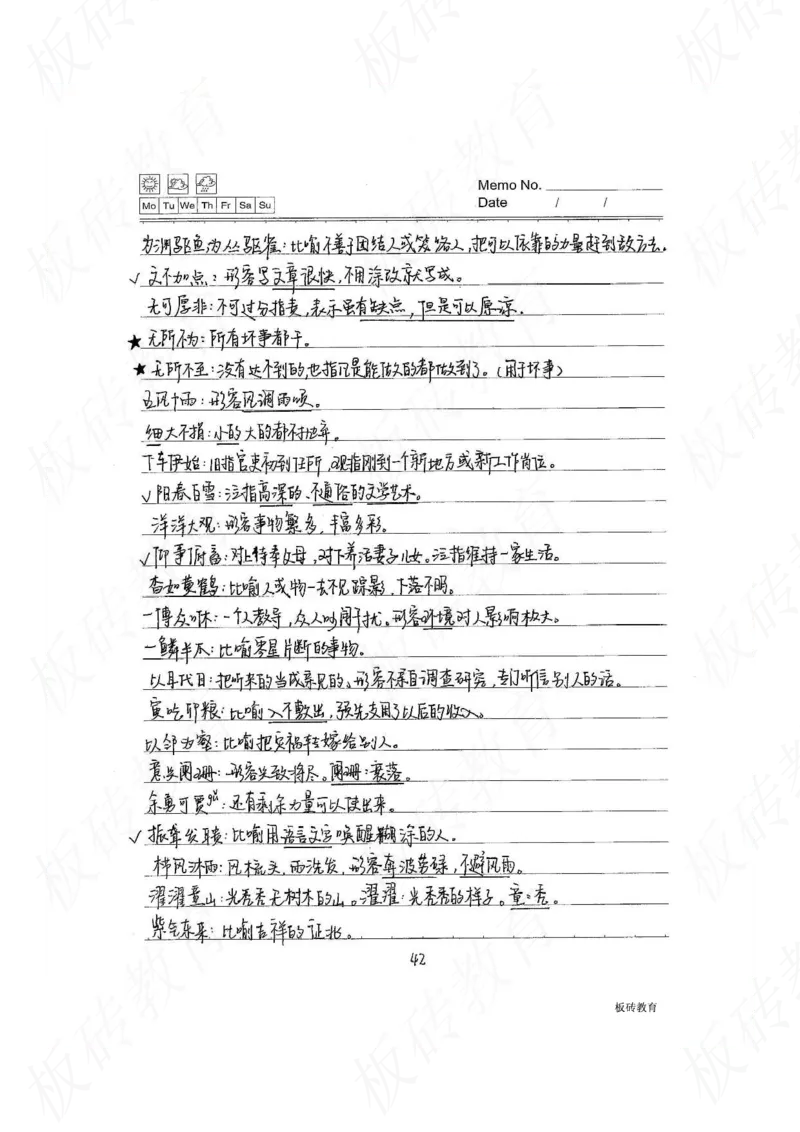 Memo No.
Mo Tu We Th Fr Sa Su
Date / /
为渊驱鱼为丛驱雀：比喻不善于团结人或笼络人，把可以依靠的力量赶到敌方去。
√ 文不加点：形容写文章很快，不用涂改就写成。
无可厚非：不可过分指责，表示虽有缺点，但是可以原谅。
★ 无所不为：所有坏事都干。
★ 无所不至：没有达不到的，也指凡是能做的都做到了。（用于坏事）
五风十雨：形容风调雨顺。
细大不捐：小的大的都不抛弃。
下车伊始：旧指官吏初到任所，现指刚到一个新地方或新工作岗位。
√ 阳春白雪：泛指高深的、不通俗的文学艺术。
洋洋大观：形容事物繁多，丰富多彩。
√ 仰事俯畜：对上侍奉父母，对下养活妻子儿女。泛指维持一家生活。
杳如黄鹤：比喻人或物一去不见踪影，下落不明。
一傅众咻：一个人教导，众人吵闹干扰。形容环境对人影响极大。
一鳞半爪：比喻零星片断的事物。
以耳代目：把听来的当成亲见的、形容不亲自调查研究，专门听信别人的话。
寅吃卯粮：比喻入不敷出，预先支用了以后的收入。
以邻为壑：比喻把灾祸转嫁给别人。
意兴阑珊：形容兴致将尽。阑珊：衰落。
余勇可贾gǔ：还有剩余力量可以使出来。
√ 振聋发聩：比喻用语言文字唤醒糊涂的人。
栉风沐雨：风梳头，雨洗发，形容奔波劳碌，不避风雨。
濯濯童山：光秃秃无树木的山。濯濯：光秃秃的样子。童：秃。
紫气东来：比喻吉祥的征兆。
42
板砖教育